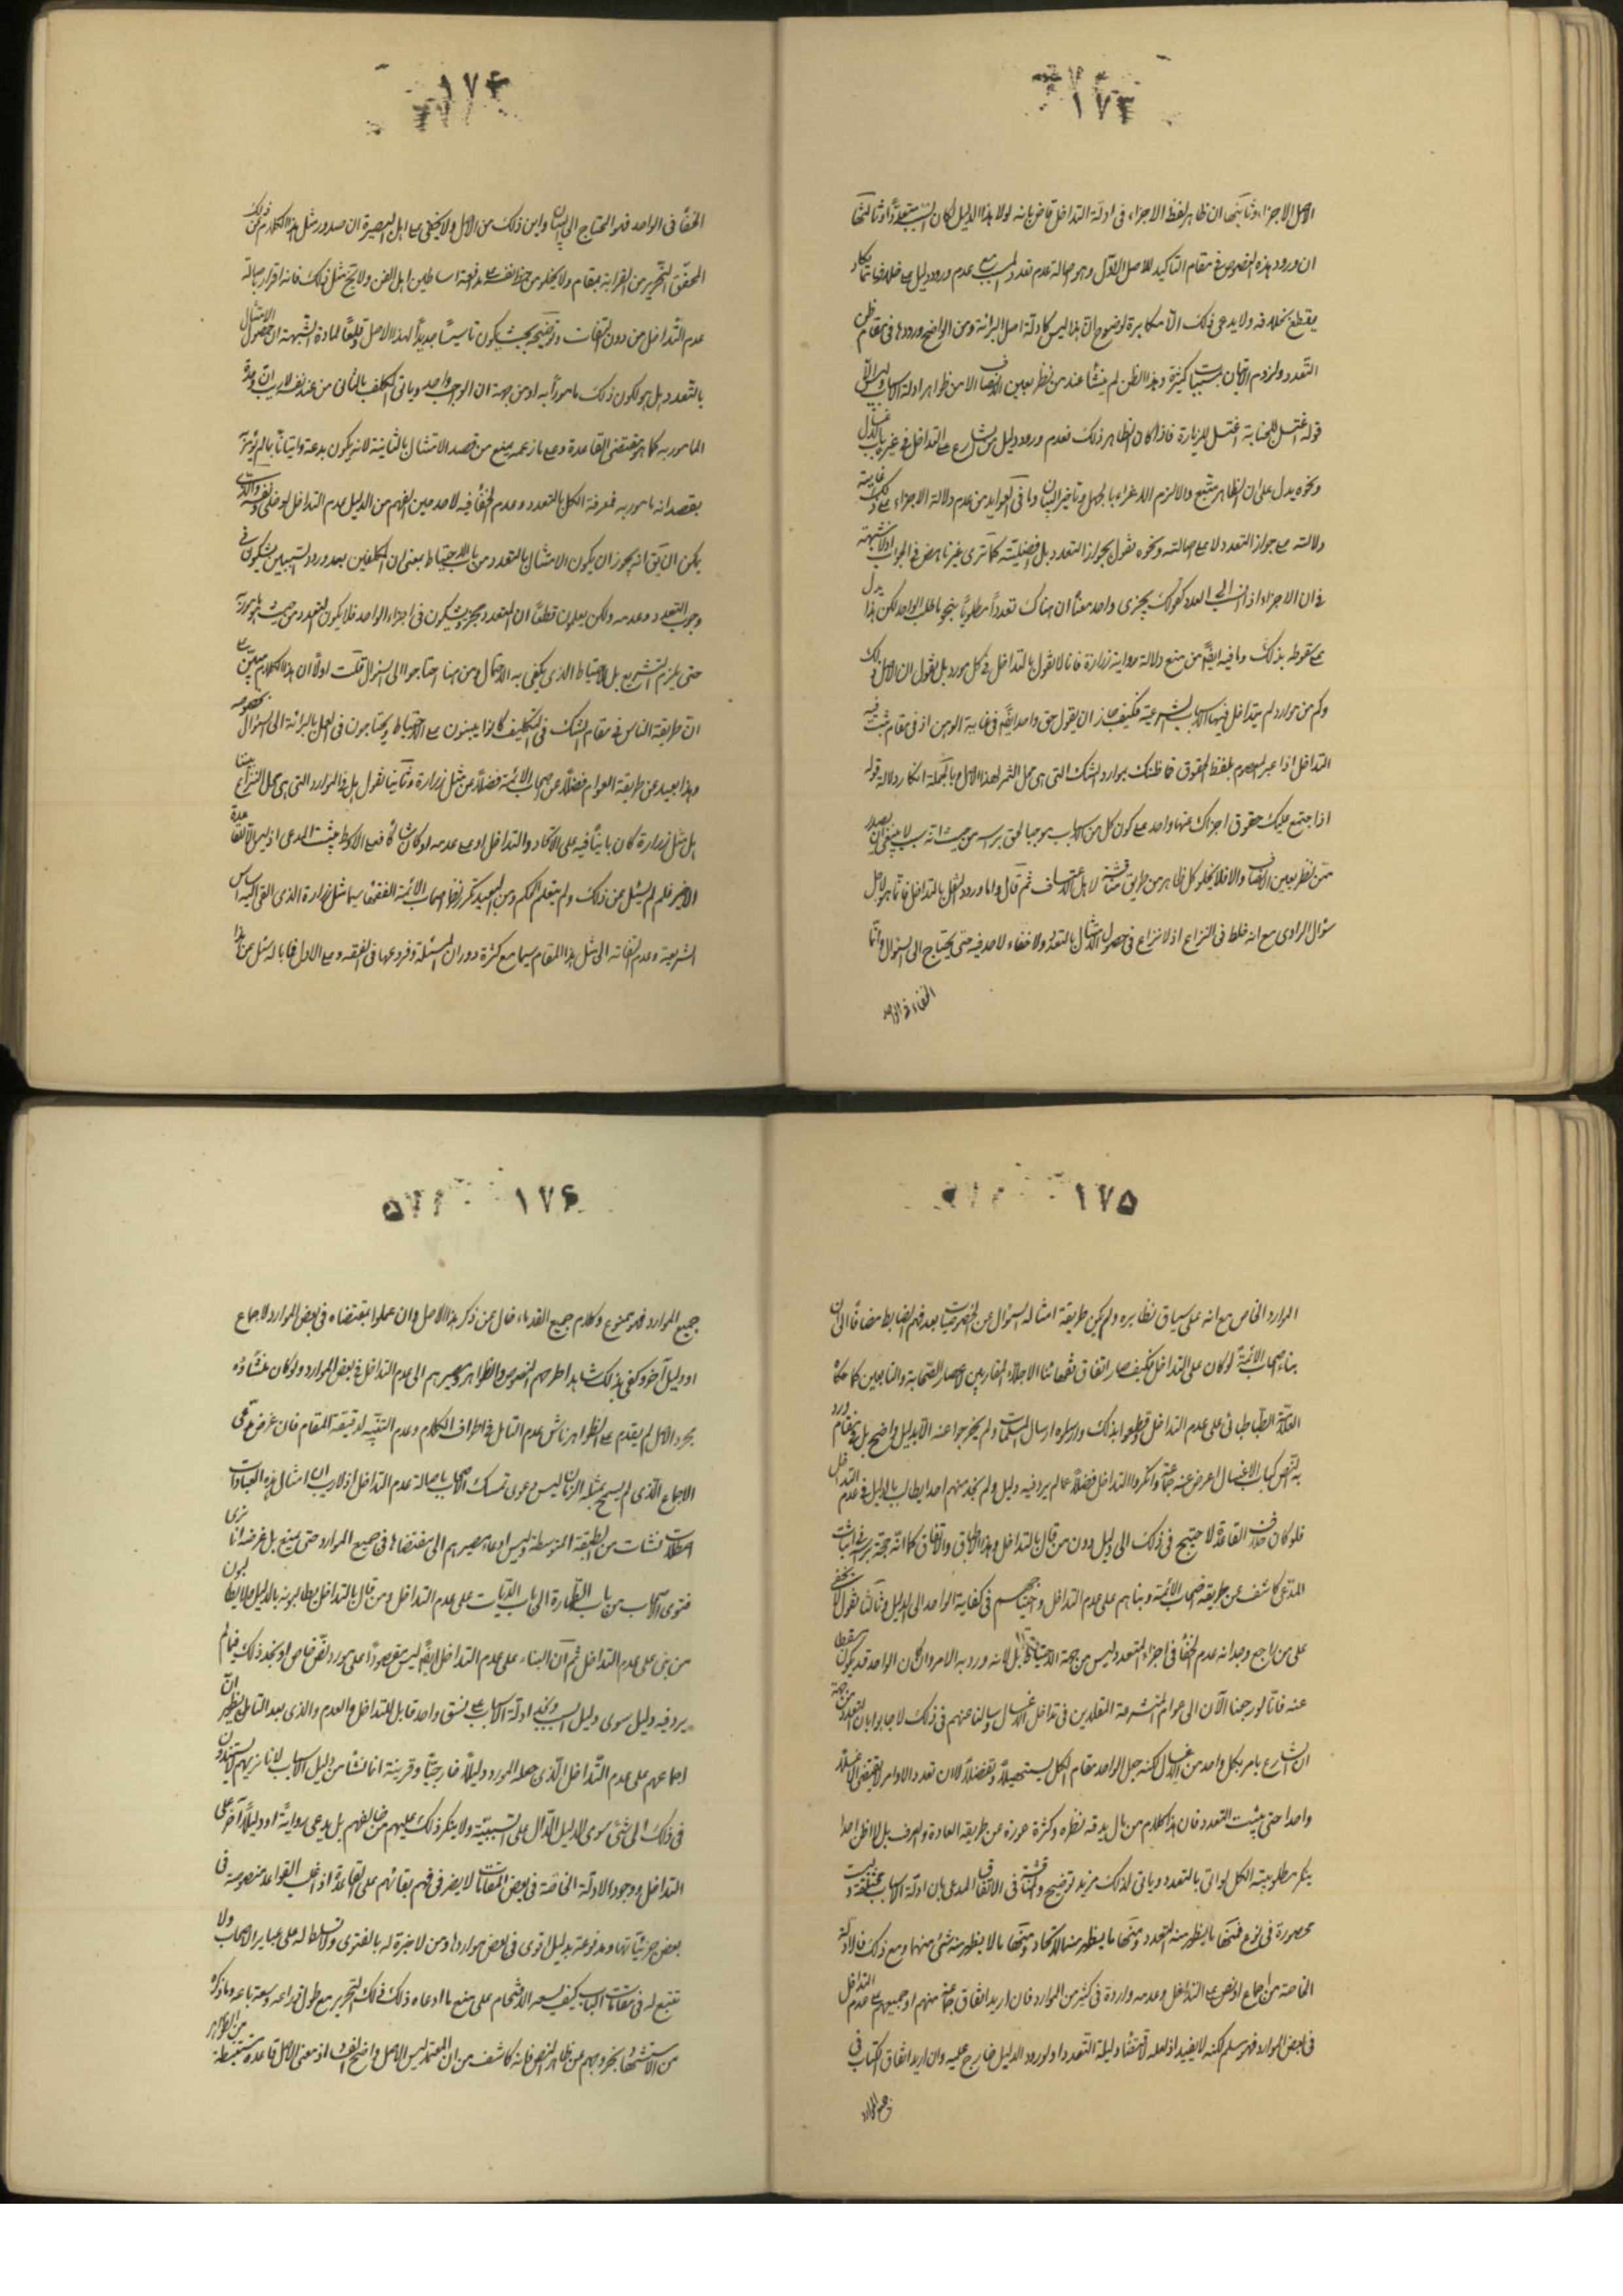 ١٧٣
الاصل الاجزاء وثانيها ان ظاهر لفظ الاجزاء فى ادلة التداخل قاض بانه لولا هذا الدليل لكان السبب متعددا وثالثها
ان ورود هذه النصوص فى مقام التاكيد للاصل الاول وهو اصالة عدم تعدد المسبب مع عدم ورود دليل على خلافه مما يكاد
يقطع بخلافه ولا يدعى ذلك الا مكابرة لوضوح ان هذا ليس كادلة اصل البرائة ومن الواضح ورودها فى مقام ظن
التعدد ولزوم الاتيان كثيرة وهذا الظن لم ينشا عند من نظر بعين الانصاف الا من ظواهر ادلة الاسباب وليس الا
قوله اغتسل للجنابة اغتسل للزيارة فاذا كان الظاهر ذلك فعدم ورود دليل من الشارع على التداخل فى غير باب الاغسال
ونحوه يدل على ان الظاهر متبع والا لزم الاغراء بالجهل وتاخير البيان وما فى العوايد من عدم دلالة الاجزاء على ذلك غايته
دلالته على جواز التعدد لا على اصالته ونحوه نقول بجواز التعدد بل افضليته كما ترى غير ناهض فى الجواب اذ لا شبهة
فى ان الاجزاء اذا نسب الى العدد كقولك يجزى واحد معناه ان هناك تعددا مطلوبا بنحو ما طلب الواحد لكن هذا يدل
على سقوطه بذلك وما فيه ايضا من منع دلالة رواية زرارة فانا لا نقول بالتداخل فى كل مورد بل نقول ان الاصل ذلك
وكم من موارد لم يتداخل فيها الاسباب الشرعية فكيف جاز ان يقول حق واحد ايضا فى غاية الوهن اذ فى مقام ثبت فيه
التداخل اذا عبر المعصوم بلفظ الحقوق فما ظنك بموارد الشك التى هى محل الثمر لهذا الاصل وبالجملة انكار دلالة قوله
اذا اجتمع عليك حقوق اجزاك عنها واحد على كون كل من الاسباب موجبا لحق براسه من حيث انه سبب لا ينبغى ان يصدر
ممن نظر بعين الانصاف والا فلا يخلو كل ظاهر من طريق مناقشة لاهل الاعتساف ثم قال واما ورود النقل بالتداخل فانما هو لاجل
سؤال الراوى مع انه غلط فى النزاع اذ لا نزاع فى حصول الامتثال بالتعدد ولا خفاء لاحد فيه حتى يحتاج الى السؤال وانما
الخفاء فى الواحد
١٧۴
الخفاء فى الواحد فهو المحتاج الى البيان واين ذلك من الاصل ولا يخفى على اهل البصيرة ان صدور مثل هذا الكلام من ذلك
المحقق النحرير من الغرابة بمقام ولا يخلو من حط نفسه مدافعة اساطين اهل الفن ولا نتج مثل ذلك فانه اقرار باصالة
عدم التداخل من دون التفات وتوضيحه بحيث يكون تاسيسا جديدا لهذا الاصل وقلعا لمادة الشبهة ان حصول الامتثال
بالتعدد هل هو لكون ذلك مامورا به او من جهة ان الواجب واحد وياتى المكلف بالثانى من عند نفسه لا ريب ان وحدة
المامور به كما هو مقتضى القاعدة وعلى ما زعمه يمنع من قصد الامتثال بالثانية لانه يكون بدعة واتيانا بما لم يؤمر به
بقصد انه مامور به فمعرفة الكل بالتعدد وعدم الخفاء فيه لاحد مبين لفهم من الدليل عدم التداخل لو خلى ونفسه والذى
يمكن ان يق انه يجوز ان يكون الامتثال بالتعدد من باب الاحتياط بمعنى ان المكلفين بعد ورود السببين يشكون فى
وجوب التعدد وعدمه ولكن يعلمون قطعا ان التعدد مجز ويشكون فى اجزاء الواحد فلا يكون التعدد من حيث هو مامورا به
حتى يلزم التشريع بل للاحتياط الذى يكفى به الاحتمال ومن هنا احتاجوا الى السؤال قلت اولا ان هذا الكلام مبنى على
ان طريقة الناس فى مقام الشك فى التكليف كانوا يبنون على الاحتياط ويحتاجون فى العمل بالبرائة الى السؤال بخصوصه
وهذا بعيد عن طريقة العوام فضلا عن اصحاب الائمة فضلا عن مثل زرارة وثانيا نقول هل هذا الموارد التى هى محل النزاع بيننا
هل مثل زرارة كان بانيا فيه على الاتحاد والتداخل او على عدمه او كان شاكا فعلى الاول يثبت المدعى اذ ليس الا للقاعدة
الاخير فلم لم يسئل عن ذلك ولم يتعلم الحكم ومن البعيد تكرر انظار اصحاب الائمة الفقهاء سيما مثل زرارة الذى القى اليه اساس
الشريعة وعدم التفاته الى مثل هذا المقام سيما مع كثرة دوران المسئلة وفروعها فى الفقه وعلى الاول فما باله سئل عن هذا
١٧۵
المورد الخاص مع انه على سياق نظايره ولم يكن طريقة امثاله السؤال عن الخصوصيات بعد فهم الضابط مضافا الى ان
بناء اصحاب الائمة لو كان على التداخل فكيف صار اتفاق فقهائنا الاجلاء المقاربين لاعصار الصحابة والتابعين كما حكاه
العلامة الطباطبائى على عدم التداخل قطعوا بذلك وارسلوه ارسال المسلمات ولم يخرجوا عنه الا بدليل واضح بل فى مقام ورد
به النص كباب الاغسال اعرض عنه جماعة وانكروا التداخل فضلا عما لم يرد فيه دليل ولم نجد منهم احدا يطالب بالدليل فى عدم التداخل
فلو كان خلاف القاعدة لاحتيج فى ذلك الى دليل دون من قال بالتداخل وهذا اطباق واتفاق كما انه حجة براسه فى اثبات
المدعى كاشف عن طريقة اصحاب الائمة وبنائهم على عدم التداخل واحتياجهم فى كفاية الواحد الى الدليل وثالثا نقول لا يخفى
على من راجع وجدانه عدم الخفاء فى اجزاء المتعدد ليس من جهة الاحتياط بل لانه ورد به الامر وان كان الواحد قد يكون مسقطا
عنه فانا لو رجعنا الآن الى عوام المتشرعة المقلدين فى تداخل الاغسال وسالناهم عن ذلك لاجابوا بان التعدد من جهة
ان الشارع يامر بكل واحد من الاغسال لكنه جعل الواحد مقام الكل تسهيلا وتفضلا لا ان تعدد الاوامر لا يقتضى الا غسلا
واحدا حتى يثبت التعدد فان هذا كلام من مال بدقة نظره وكثرة غوره عن طريقة العادة والعرف بل لا اظن احدا
ينكر مطلوبية الكل لو اتى بالتعدد وياتى لذلك مزيد توضيح والمناقشة فى الاتفاق المدعى بان ادلة الاسباب مختلفة وليست
محصورة فى نوع فمنها ما يظهر منه التعدد ومنها ما يظهر منه الاتحاد ومنها ما لا يظهر منه شئ منهما ومع ذلك فالادلة
الخاصة من اجماع او نص على التداخل وعدمه واردة فى كثير من الموارد فان اريد اتفاق جماعة منهم او جميعهم على عدم التداخل
فى بعض الموارد فهو مسلم لكنه لا يفيد اذ لعله لاقتضاء دليله التعدد او لورود الدليل خارج عليه وان اريد اتفاق الكتاب فى
جميع الموارد
١٧۶
جميع الموارد فهو ممنوع وكلام جميع القدماء خال عن ذكر هذا الاصل وان عملوا بمقتضاه فى بعض الموارد لاجماع
او دليل آخر وكفى بذلك شاهدا طرحهم النصوص والظواهر ومصيرهم الى عدم التداخل فى بعض الموارد ولو كان منشاؤه
مجرد الاصل لم يقدم على الظواهر ناش عن عدم التامل فى اطراف الكلام وعدم التنبه لدقيقة المقام فان غرض مدعى
الاجماع الذى لم يسمح بمثله الزمان ليس دعوى تمسك الاصحاب باصالة عدم التداخل اذ لا ريب ان امثال هذه العبادات
اصطلاحات نشات من الطبقة المتوسطة وليس ادعاء مصيرهم الى مقتضاها فى جميع الموارد حتى يمنع بل غرضه انا نرى
فتوى الاصحاب من باب الطهارة الى باب الديات على عدم التداخل ومن قال بالتداخل يطالبونه بالدليل ولا يطالبون
من بنى على عدم التداخل ثم ان البناء على عدم التداخل ايضا ليس مقصورا على مورد نص خاص او نجد ذلك فيما لم
يرد فيه دليل سوى دليل السبب ونجد ادلة الاسباب على نسق واحد قابل للتداخل والعدم والذى بعد التامل يظهر ان
اجماعهم على عدم التداخل الذى جعله المورد دليلا خارجيا وقرينة انما نشا من دليل الاسباب لانا نريهم لا يستندون
فى ذلك الى شئ سوى الدليل الدال على السببية ولا ينكر ذلك عليهم من خالفهم بل يدعى رواية او دليلا آخر على
التداخل ووجود الادلة الخاصة فى بعض المقامات لا يضر فى فهم بقائهم على القاعدة اذ اغلب القواعد منصوصة فى
بعض جزئياتها ومدفوعة بدليل اقوى فى بعض مواردها ومن لا خبرة له بالفتوى ولا تسلط له على عباير الاصحاب ولا
تتبع له فى مقامات الباب كيف يسعه الاقتحام على منع ما ادعاه ذلك فى ذلك النحرير مع طول ذراعه وسعة باعه وما ذكره
من الاستشهاد بخروجهم عن ظاهر النصوص فانه كاشف من ان المعتمد ليس الاصل واضح الضعف اذ معنى الاصل قاعدة مستنبطة من الظواهر